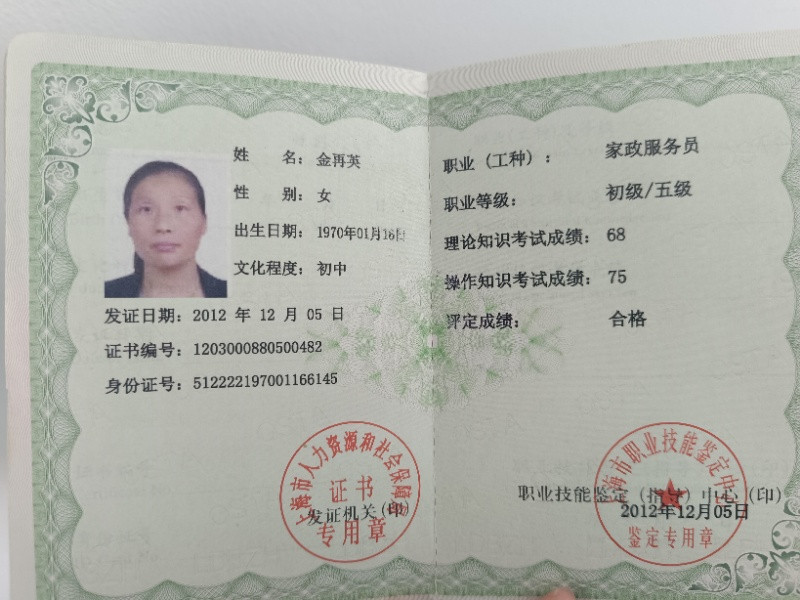 姓 名：金再英
性 别：女
出生日期：1970年01月16日
文化程度：初中
发证日期：2012 年 12 月 05 日
证书编号：1203000880500482
身份证号：512222197001166145
上海市人力资源和社会保障局
证书
发证机关(印)
专用章
职业（工种）：家政服务员
职业等级：初级/五级
理论知识考试成绩：68
操作知识考试成绩：75
评定成绩：合格
上海市职业技能鉴定中心
职业技能鉴定（指导）中心（印）
2012年12月05日
鉴定专用章